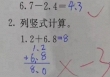 6.7-2.4=4.3
2.列竖式计算。
1.2+6.8=
1.2
+6.8
8.0
-3